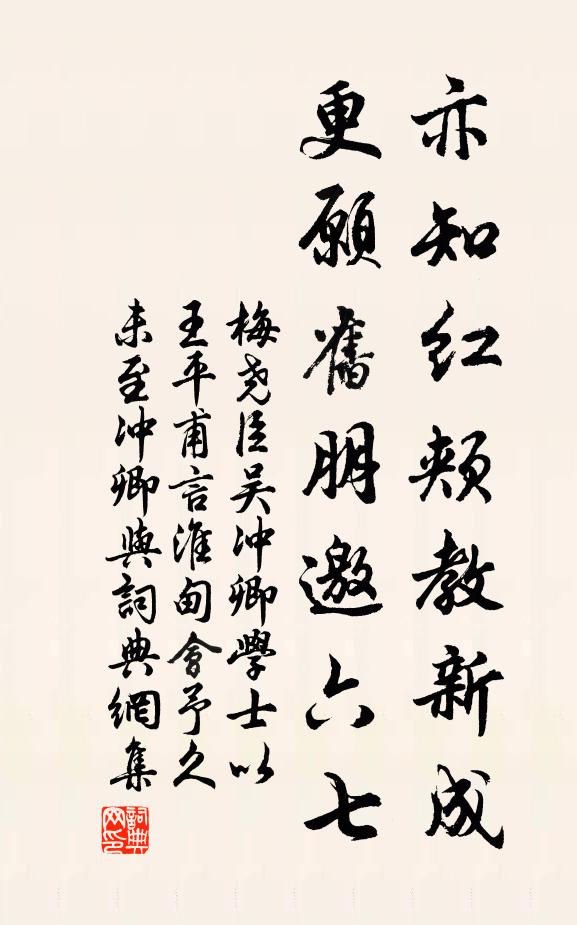 亦知红颊教新成
更願舊朋邀六七
梅尧臣吴冲卿學士以
王平甫言淮甸會予久
未至冲卿與詞典網集
詞典
网印